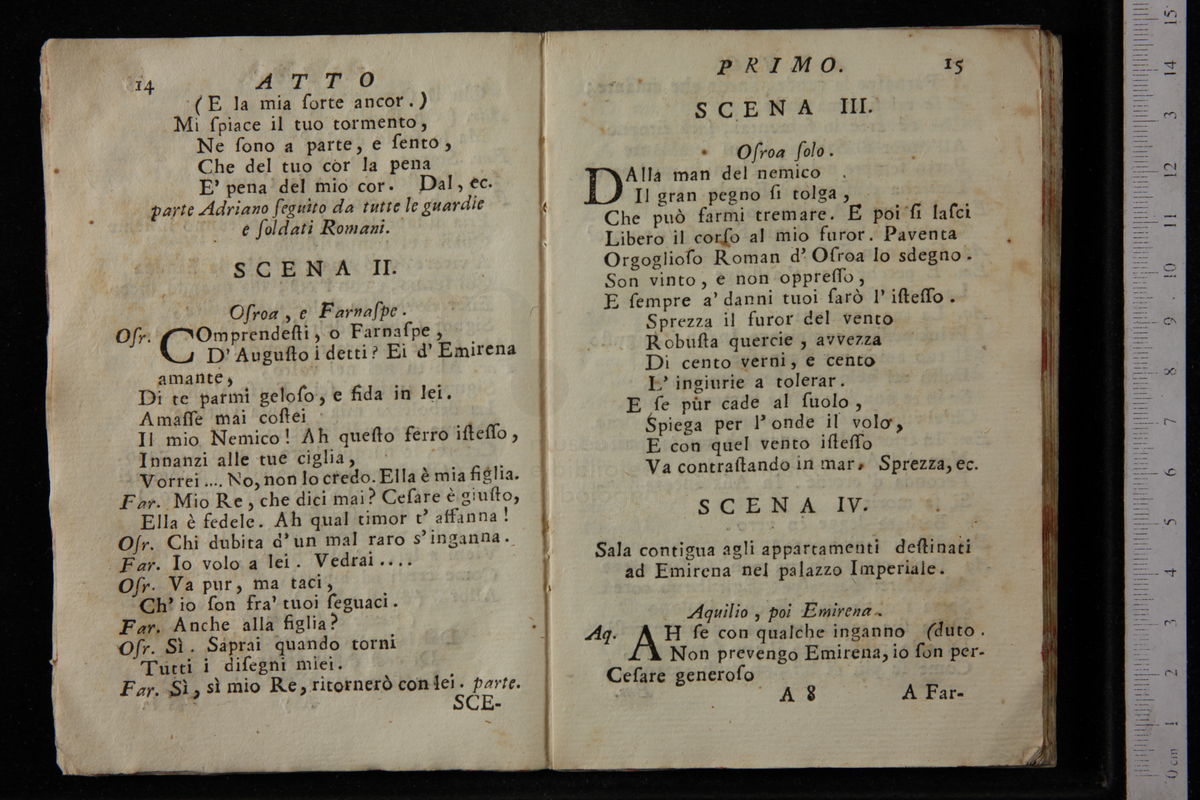 14 ATTO
(E la mia ſorte ancor.)
Mi ſpiace il tuo tormento,
Ne ſono a parte, e ſento,
Che del tuo cor la pena
E' pena del mio cor. Dal, ec.
parte Adriano ſeguito da tutte le guardie
e ſoldati Romani.
SCENA II.
Oſroa, e Farnaſpe.
Oſr. COmprendeſti, o Farnaſpe,
D' Auguſto i detti? Ei d' Emirena
amante,
Di te parmi geloſo, e fida in lei.
Amaſſe mai coſtei
Il mio Nemico! Ah queſto ferro iſteſſo,
Innanzi alle tue ciglia,
Vorrei .... No, non lo credo. Ella è mia figlia.
Far. Mio Re, che dici mai? Ceſare è giuſto,
Ella è fedele. Ah qual timor t' affanna!
Oſr. Chi dubita d' un mal raro s' inganna.
Far. Io volo a lei. Vedrai ....
Oſr. Va pur, ma taci,
Ch' io ſon fra' tuoi ſeguaci.
Far. Anche alla figlia?
Oſr. Sì. Saprai quando torni
Tutti i diſegni miei.
Far. Sì, sì mio Re, ritornerò con lei. parte.
SCE-
PRIMO. 15
SCENA III.
Oſroa ſolo.
DAlla man del nemico
Il gran pegno ſi tolga,
Che può farmi tremare. E poi ſi laſci
Libero il corſo al mio furor. Paventa
Orgoglioſo Roman d' Oſroa lo sdegno.
Son vinto, e non oppreſſo,
E ſempre a' danni tuoi ſarò l' iſteſſo.
Sprezza il furor del vento
Robuſta quercie, avvezza
Di cento verni, e cento
L' ingiurie a tolerar.
E ſe pur cade al ſuolo,
Spiega per l' onde il volo,
E con quel vento iſteſſo
Va contraſtando in mar. Sprezza, ec.
SCENA IV.
Sala contigua agli appartamenti deſtinati
ad Emirena nel palazzo Imperiale.
Aquilio, poi Emirena.
Aq. AH ſe con qualche inganno (duto.
Non prevengo Emirena, io ſon per-
Ceſare generoſo
A 8 A Far-
0 cm 1 2 3 4 5 6 7 8 9 10 11 12 3 14 15